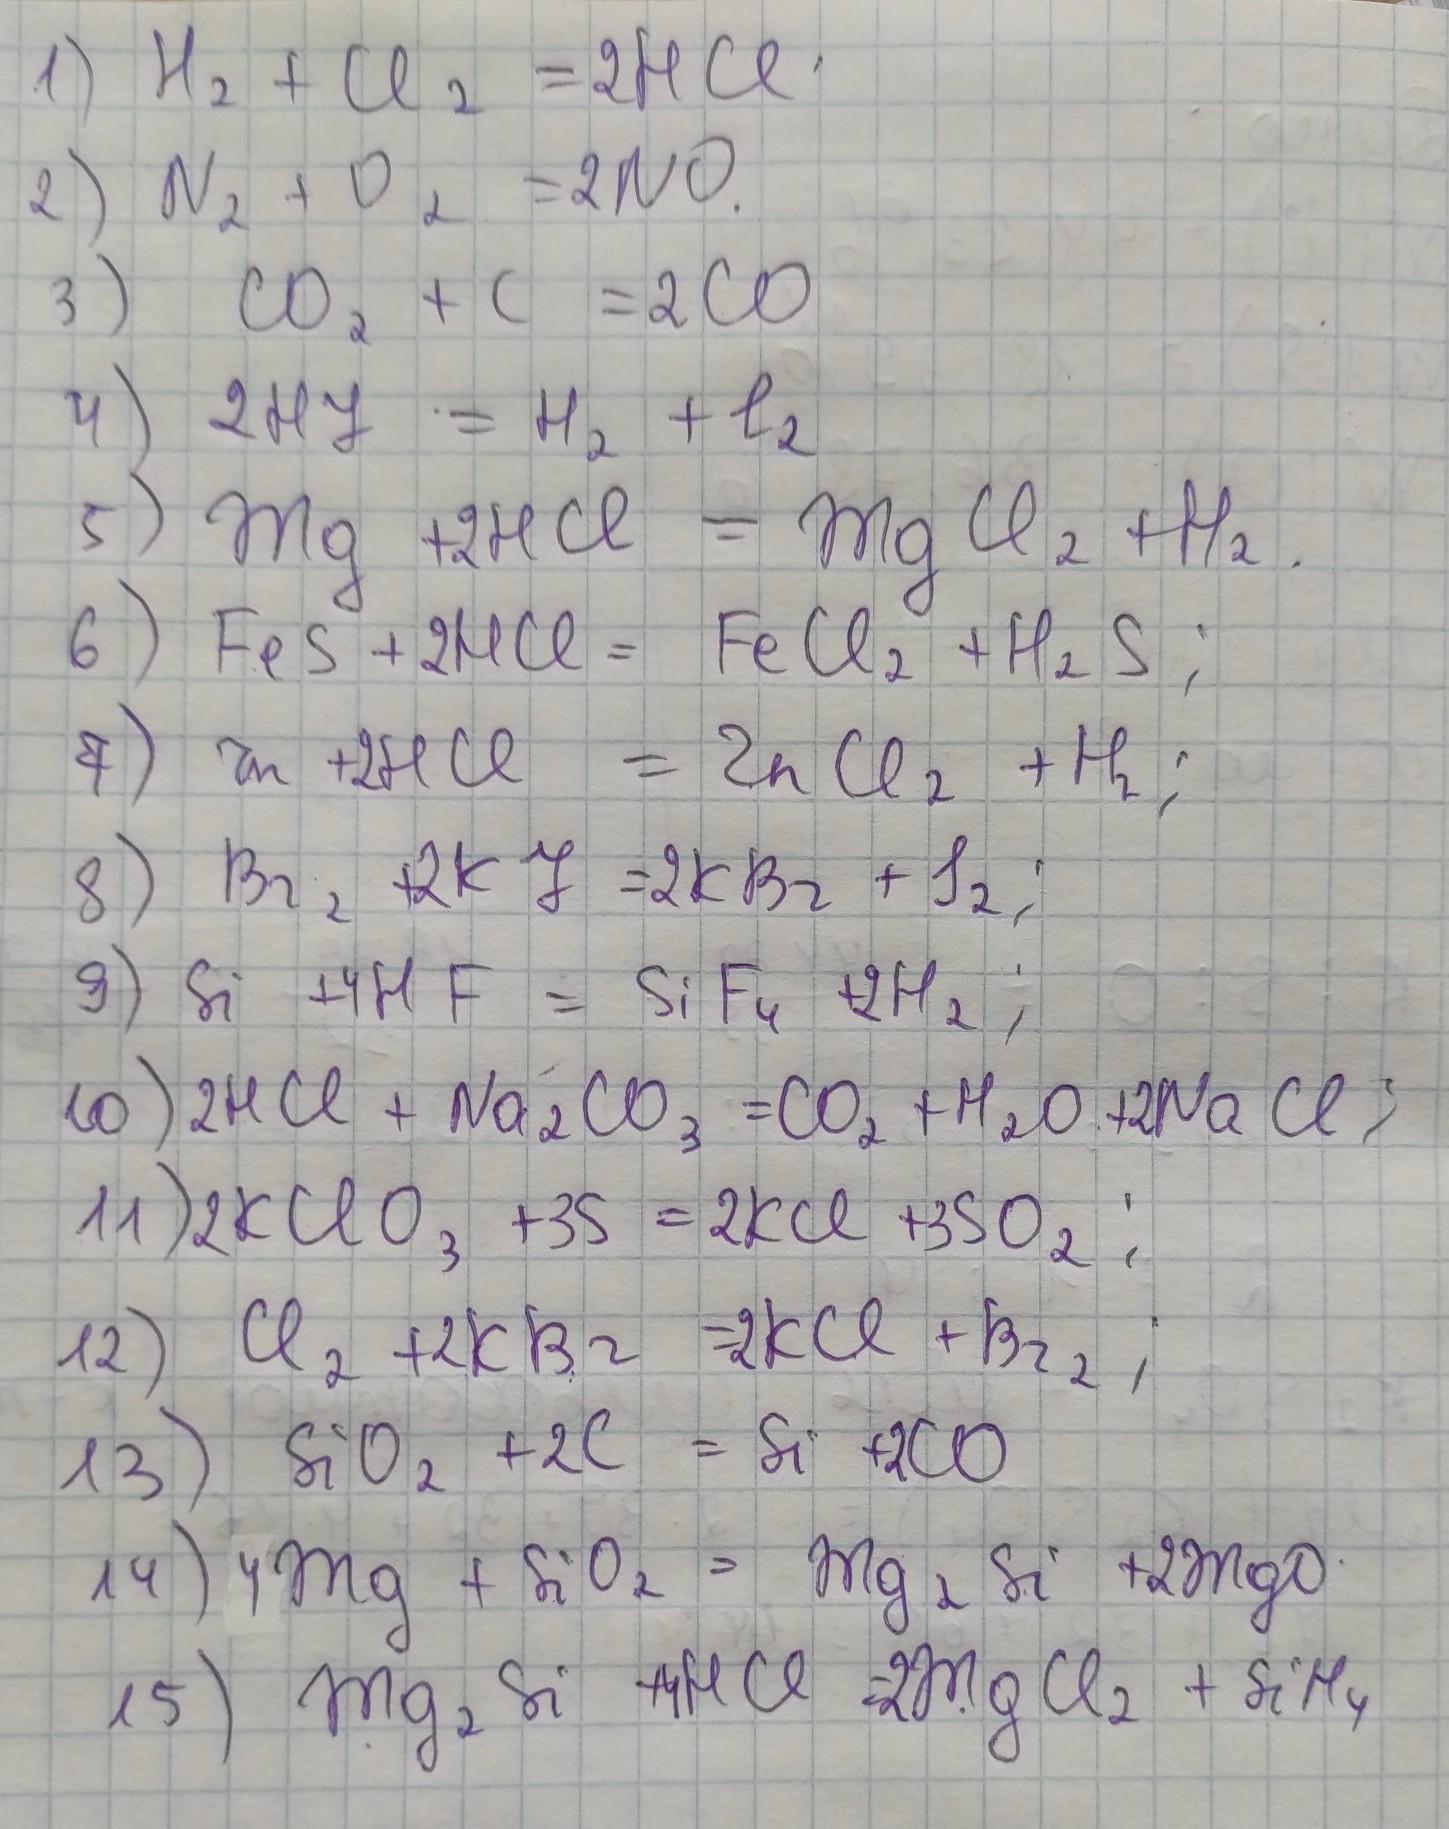 1) H₂ + Cl₂ = 2HCl.
2) N₂ + O₂ = 2NO.
3) CO₂ + C = 2CO
4) 2HJ = H₂ + I₂
5) Mg + 2HCl = MgCl₂ + H₂.
6) FeS + 2HCl = FeCl₂ + H₂S;
7) Zn + 2HCl = ZnCl₂ + H₂;
8) Br₂ + 2KJ = 2KBr + I₂;
9) Si + 4HF = SiF₄ + 2H₂;
10) 2HCl + Na₂CO₃ = CO₂ + H₂O + 2NaCl;
11) 2KClO₃ + 3S = 2KCl + 3SO₂;
12) Cl₂ + 2KBr = 2KCl + Br₂;
13) SiO₂ + 2C = Si + 2CO
14) 4Mg + SiO₂ = Mg₂Si + 2MgO.
15) Mg₂Si + 4HCl = 2MgCl₂ + SiH₄